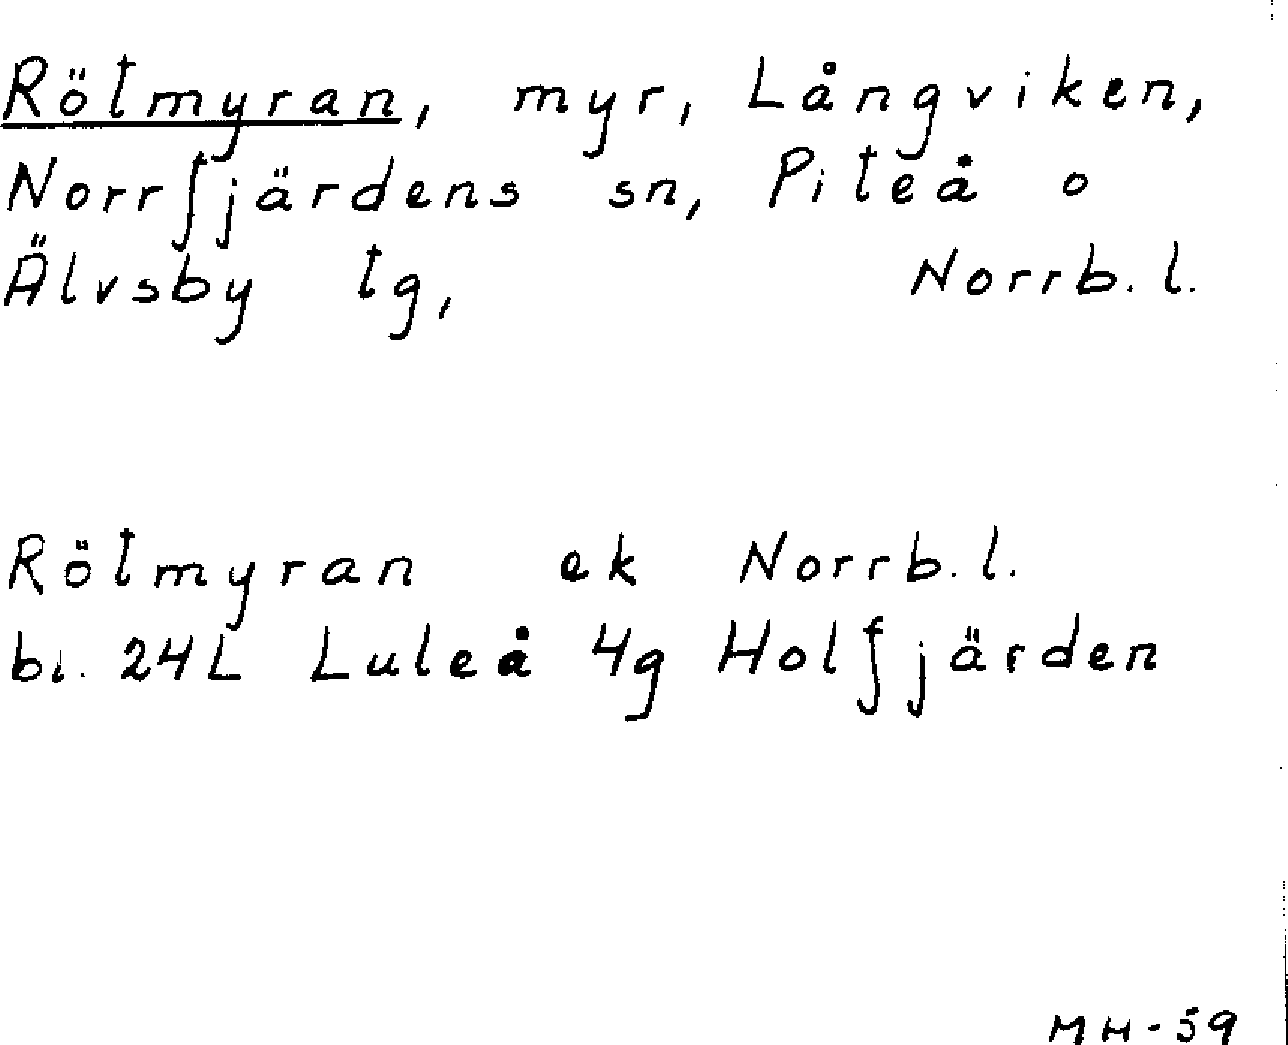 Rötmyran, myr, Långviken,
Norrfjärdens sn, Piteå o
Älvsby tg, Norrb. l.
Rötmyran ek Norrb. l.
bl. 24L Luleå 4g Holfjärden
MH-59